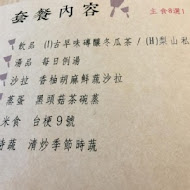 套餐內容
主食8選1
飲品 (I)古早味磚釀冬瓜茶 / (H)梨山私
湯品 每日例湯
沙拉 香柚胡麻鮮蔬沙拉
蒸蛋 黑頭菇茶碗蒸
米食 台梗9號
時蔬 清炒季節時蔬